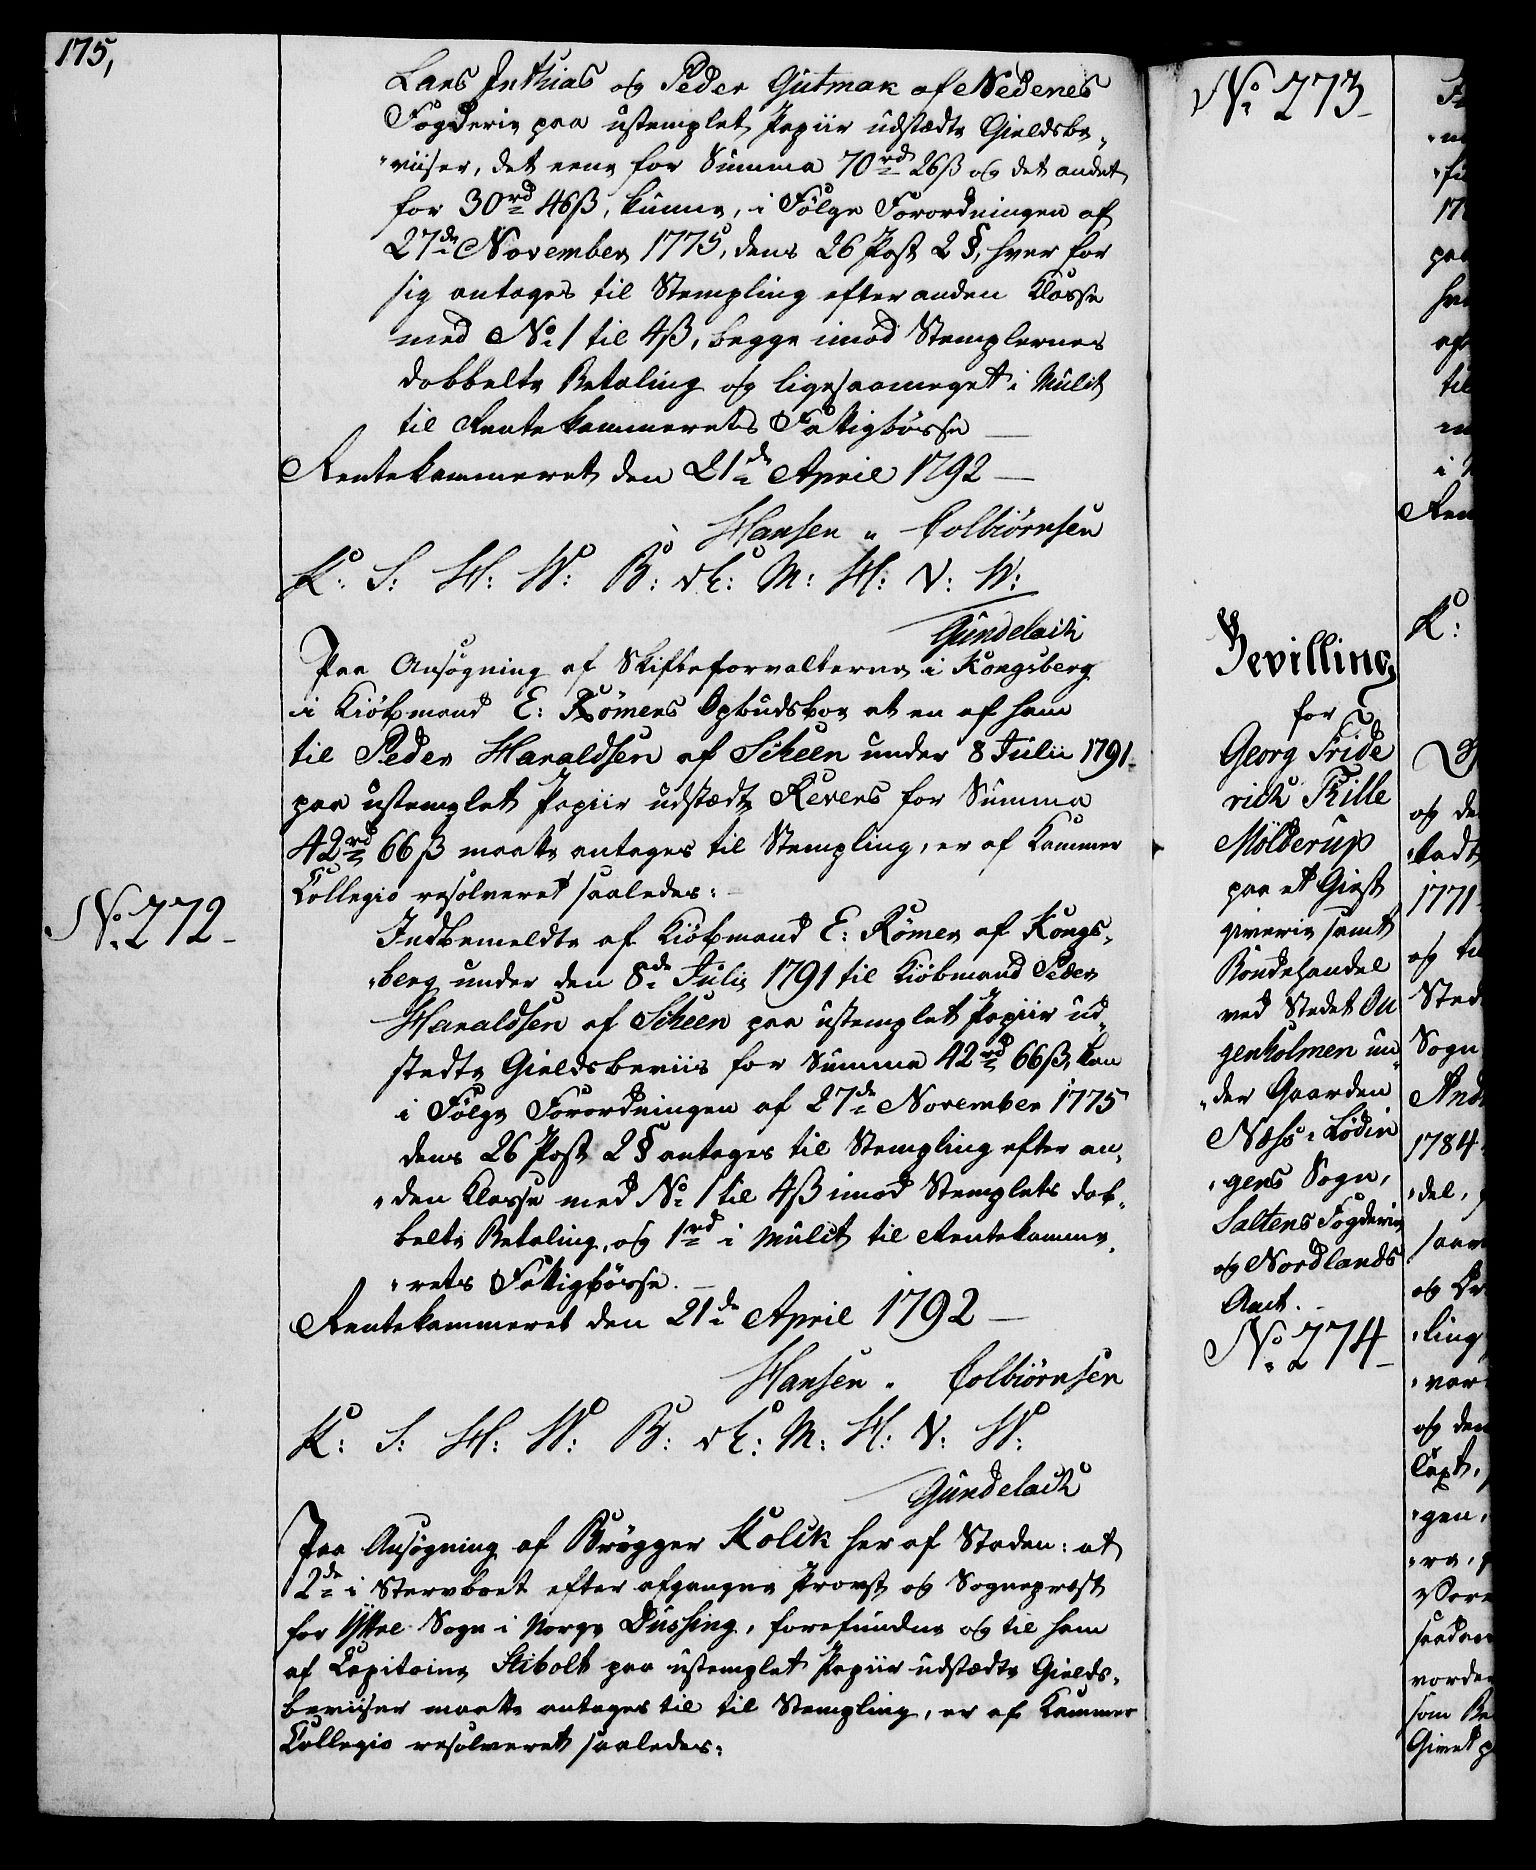 175,
Lars Inthias og Peder Gutmak af Nedenes
Fogderie paa ustemplet Papiir udstædte Gieldsbe„
„viiser, det eene for Summa 70rd 26ß og det andet
for 30rd 46ß, kunne, i Følge Forordningen af
27de November 1775, dens 26 Post 2 §, hver for
sig antages til Stempling efter anden Klasse
med No 1 til 4ß, begge imod Stemplernes
dobbelte Betaling og ligesaameget i Mulct
til Rentekammerets Fattigbøsse —
Rentekammeret den 21de April 1792 —
Hansen „ Colbiørnsen
K: S: H: W: B: M: H: N: W:
Gundelach
Paa Ansøgning af Skifteforvalterne i Kongsberg
i Kiøbmand E: Rømers Opbudsboe at en af ham
til Peder Haraldsen af Scheen under 8 Julii 1791
paa ustemplet Papiir udstædt Revers for Summa
42rd 66ß maatte antages til Stempling, er af Kammer
Collegio resolveret saaledes:
No 272 -
Indbemeldte af Kiøbmand E: Rømer af Kongs„
„berg under den 8de Julii 1791 til Kiøbmand Peder
Haraldsen af Scheen paa ustemplet Papiir ud„
stedte Gieldsbeviis for Summa 42rd 66ß, kan
i Følge Forordningen af 27de November 1775
dens 26 Post 2 § antages til Stempling efter an„
„den Klasse med No 1 til 4ß imod Stemplets dob„
belte Betaling, og 1rd i Mulct til Rentekamme„
„rets Fattigbøsse. —
Rentekammeret den 21de April 1792 —
Hansen „ Colbiørnsen
K: S: H: W: B: M: H: N: W:
Gundelach
Paa Ansøgning af Brøgger Kolck her af Staden: at
2de i Stervboet efter afgangne Provst og Sognepræst
for Sogn i Norge Dussing, forefundne og til ham
af Capitaine Stibolt paa ustemplet Papiir udstædte Gields„
beviiser maatte antages til til Stempling, er af Kammer
Collegio resolveret saaledes:
No 273 -
Bevilling
for
Georg Fride
rich Thille
Mölderup
paa et Giest
giverie samt
Bondehandel
ved Stedet Ou
genholmen un„
„der Gaarden
Næss: Lødin
„gens Sogn,
Saltens Fogderie
og Nordlands
Amt. -
No 274 -
paa
til
i
Ren
K:
og de
1771
og ti
Sted
Sogn
And
1784
„del,
saa
og
„ling
„var
og den
Capt,
„gen,
„re,
saadan
vorde
som Be
Givet p